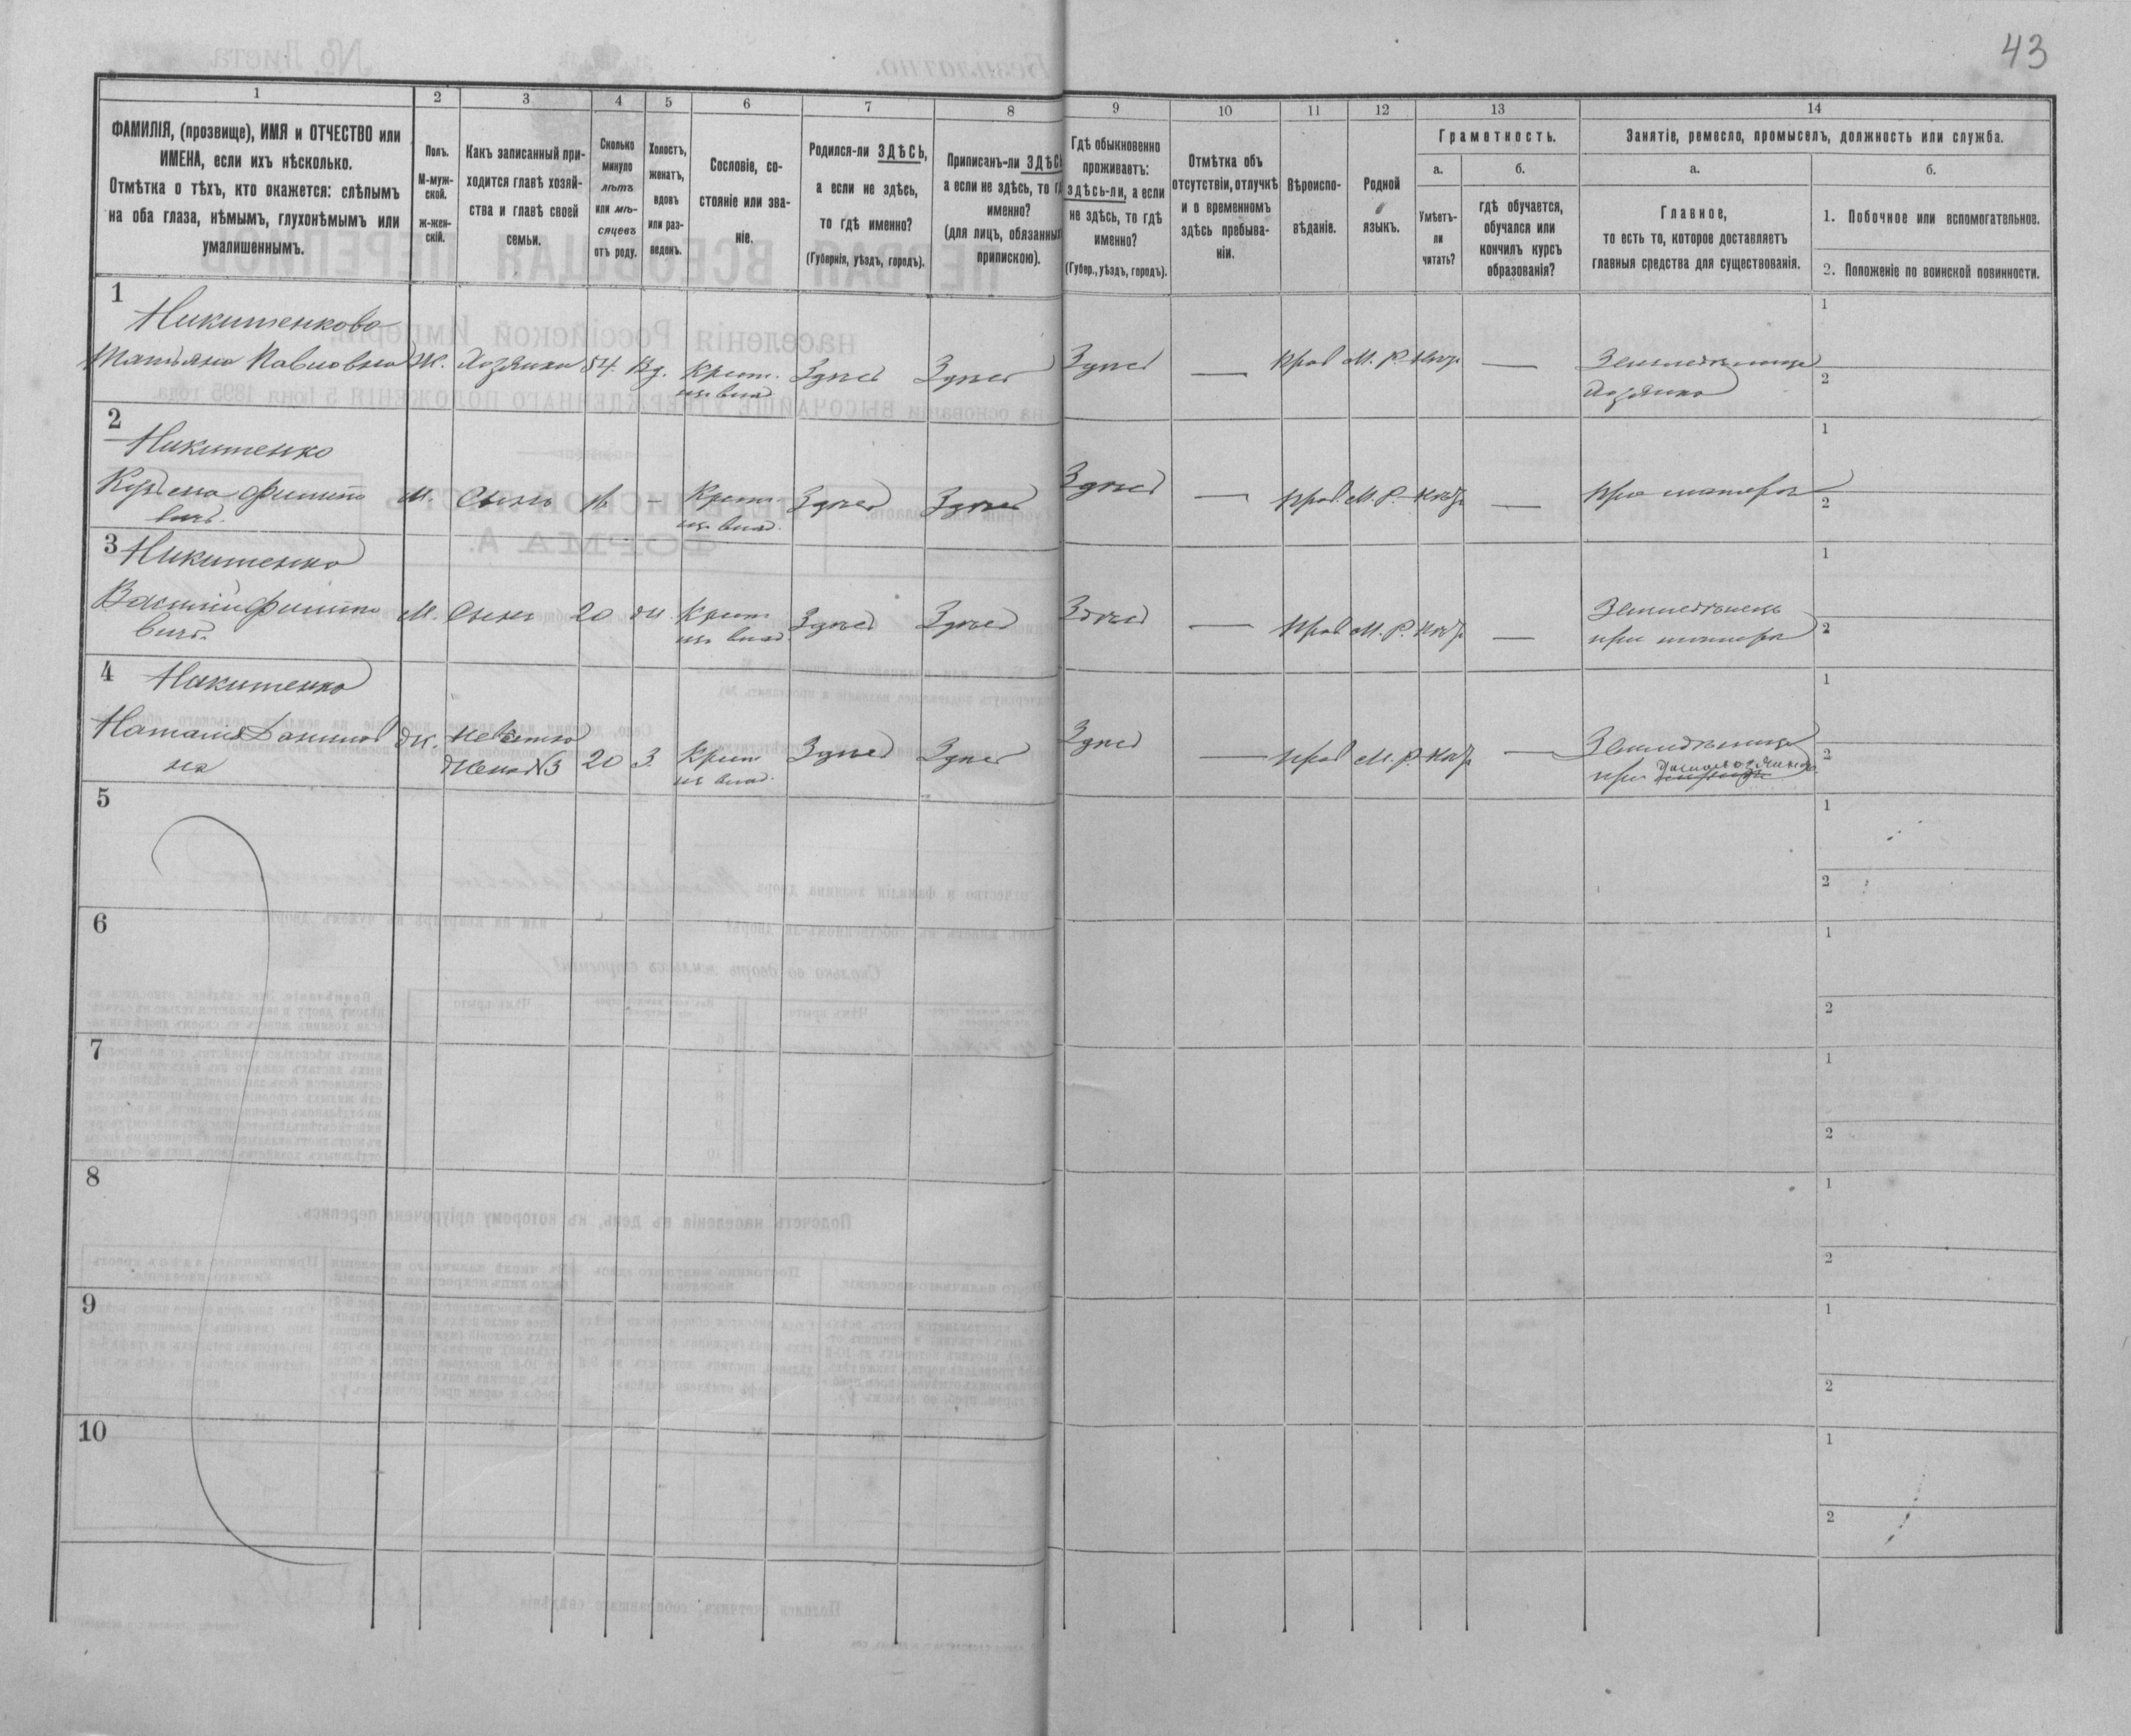 43
1 2 3 4 5 6 7 8 9 10 11 12 13 14
ФАМИЛІЯ, (прозвище), ИМЯ и ОТЧЕСТВО или
ИМЕНА, если ихъ нѣсколько.
Отмѣтка о тѣхъ, кто окажется: слѣпымъ
на оба глаза, нѣмымъ, глухонѣмымъ или
умалишеннымъ.
Полъ.
М-муж-
ской.
Ж-жен-
скій.
Какъ записанный при-
ходится главѣ хозяй-
ства и главѣ своей
семьи.
Сколько
минуло
лѣтъ
или мѣ-
сяцевъ
отъ роду.
Холостъ,
женатъ,
вдовъ
или раз-
веденъ.
Сословіе, со-
стояніе или зва-
ніе.
Родился-ли ЗДѢСЬ,
а если не здѣсь,
то гдѣ именно?
(Губернія, уѣздъ, городъ).
Приписанъ-ли ЗДѢСЬ
а если не здѣсь, то г
именно?
(для лицъ, обязанных
припискою).
Гдѣ обыкновенно
проживаетъ:
здѣсь-ли, а если
не здѣсь, то гдѣ
именно?
(Губер., уѣздъ, городъ).
Отмѣтка объ
отсутствіи, отлучкѣ
и о временномъ
здѣсь пребыва-
ніи.
Вѣроиспо-
вѣданіе.
Родной
языкъ.
Грамотность.
а.
Умѣетъ-
ли
читать?
б.
гдѣ обучается,
обучался или
кончилъ курсъ
образованія?
Занятіе, ремесло, промыселъ, должность или служба.
а.
Главное,
то есть то, которое доставляетъ
главныя средства для существованія.
б.
1. Побочное или вспомогательное.
2. Положеніе по воинской повинности.
1
Никитенкова
Татьяна Павловна Ж. Хозяйка 54. Вд. Крест. Здѣсь Здѣсь Здѣсь — Прав М. Р. нѣтъ — Земледѣлица
из влад. хозяйка
1
2
2
Никитенко
М. Сынъ 16 — Крест. Здѣсь Здѣсь Здѣсь — Прав. М. Р. нѣтъ — при матери
вичъ. из влад.
1
2
3 Никитенко
Василій Филипо М. Сынъ 20 Ж. Крест. Здѣсь Здѣсь Здѣсь — Прав М. Р. нѣтъ — Земледѣлецъ
вичъ. из влад. при матери
1
2
4 Никитенко
Наталія Данилов Ж. Невѣстка 20 З. Крест Здѣсь Здѣсь Здѣсь — Прав М. Р. нѣтъ — Земледѣлица
на Жена №3 из влад. при
1
2
5
1
2
6
1
2
7
1
2
8
1
2
9
1
2
10
1
2